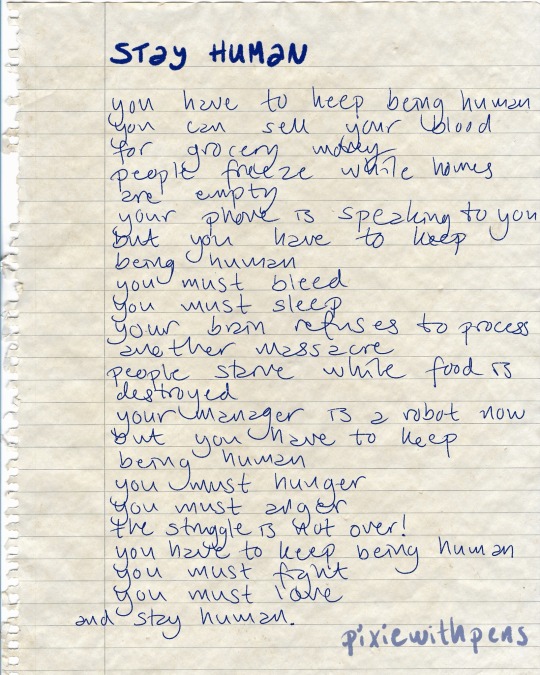 STAY HUMAN
you have to keep being human
you can sell your blood
for grocery money
people freeze while homes
are empty
your phone is speaking to you
but you have to keep
being human
you must bleed
you must sleep
your brain refuses to process
another massacre
people starve while food is
destroyed
your manager is a robot now
but you have to keep
being human
you must hunger
you must anger
the struggle is not over!
you have to keep being human
you must fight
you must love
and stay human.
pixiewithpens